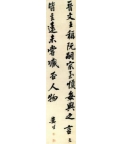 晉文王稱阮嗣宗至慎每與之言言
皆玄遠未嘗臧否人物